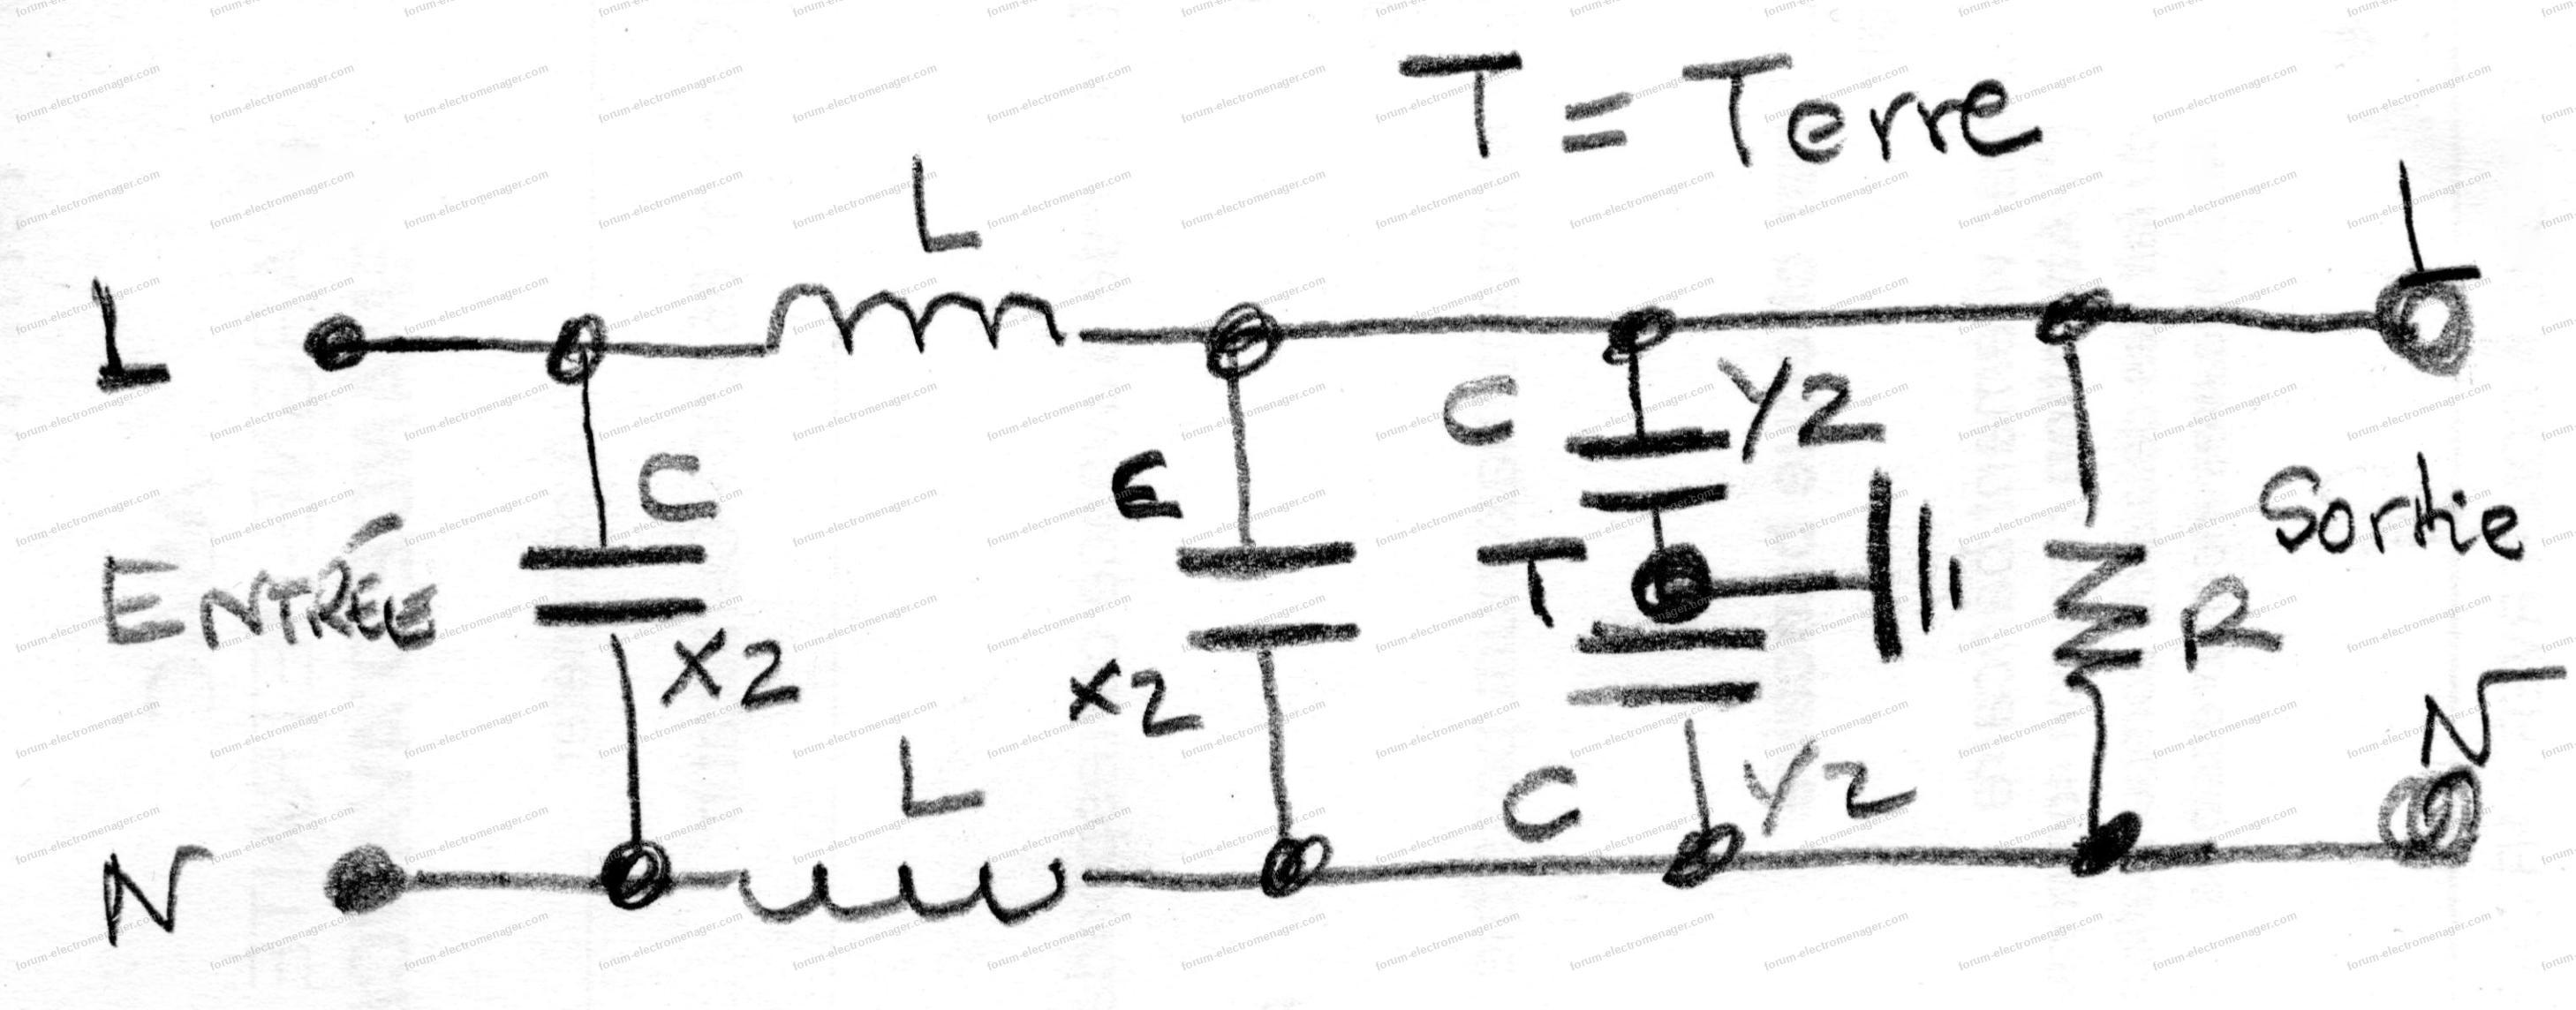 T = Terre
L
L
L
C
Y2
C
E
ENTRÉE
T
Sortie
R
X2
X2
N
L
C
Y2
N
forum-electromenager.com